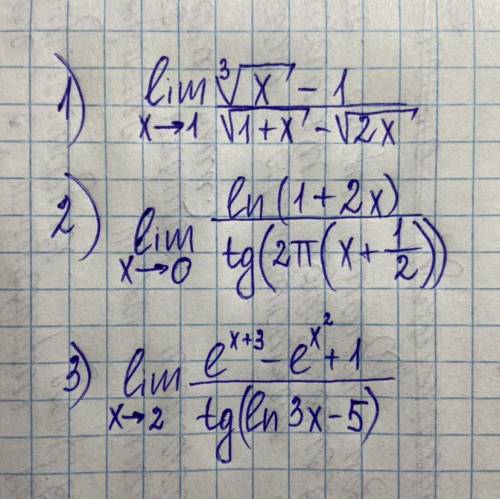 1) lim x→1 (∛x - 1)/(√(1+x) - √(2x))
2) lim x→0 ln(1+2x)/tg(2π(x+1/2))
3) lim x→2 (e^(x+3) - e^(x^2) + 1)/tg(ln 3x - 5)